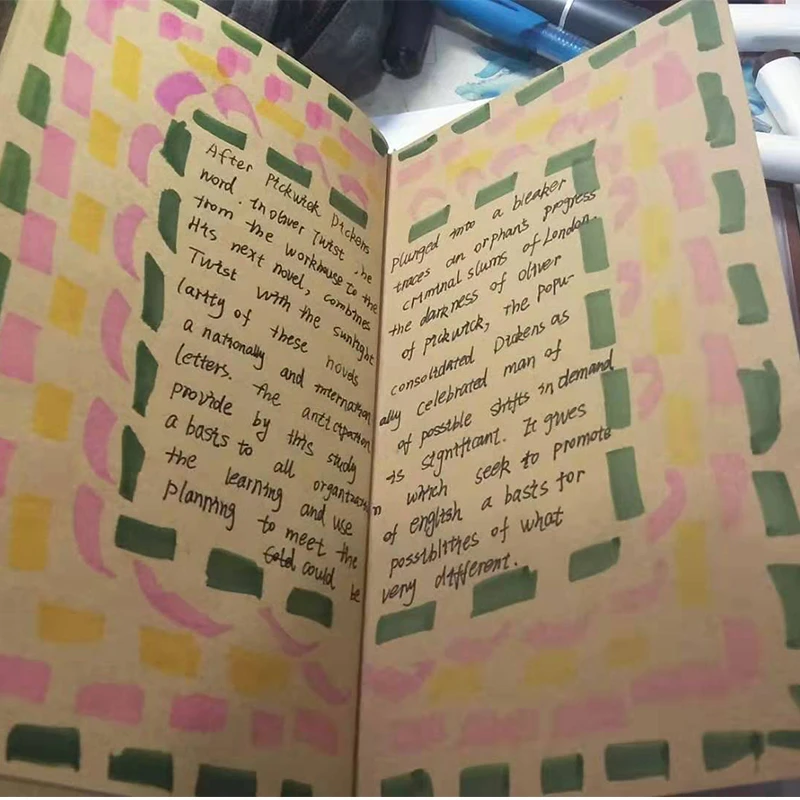 After Pickwick Dickens plunged into a bleaker
word. In oliver Twist, he traces an orphan's progress
from the workhouse to the criminal slums of London.
His next novel, combines the darkness of oliver
Twist with the sunlight of Pickwick, The popu-
larity of these novels consolidated Dickens as
a nationally and internationally celebrated man of
letters. The anticipation of possible shifts in demand
provide by this study is significant. It gives
a basis to all organization which seek to promote
the learning and use of english a basis for
planning to meet the possiblities of what
could be very different.